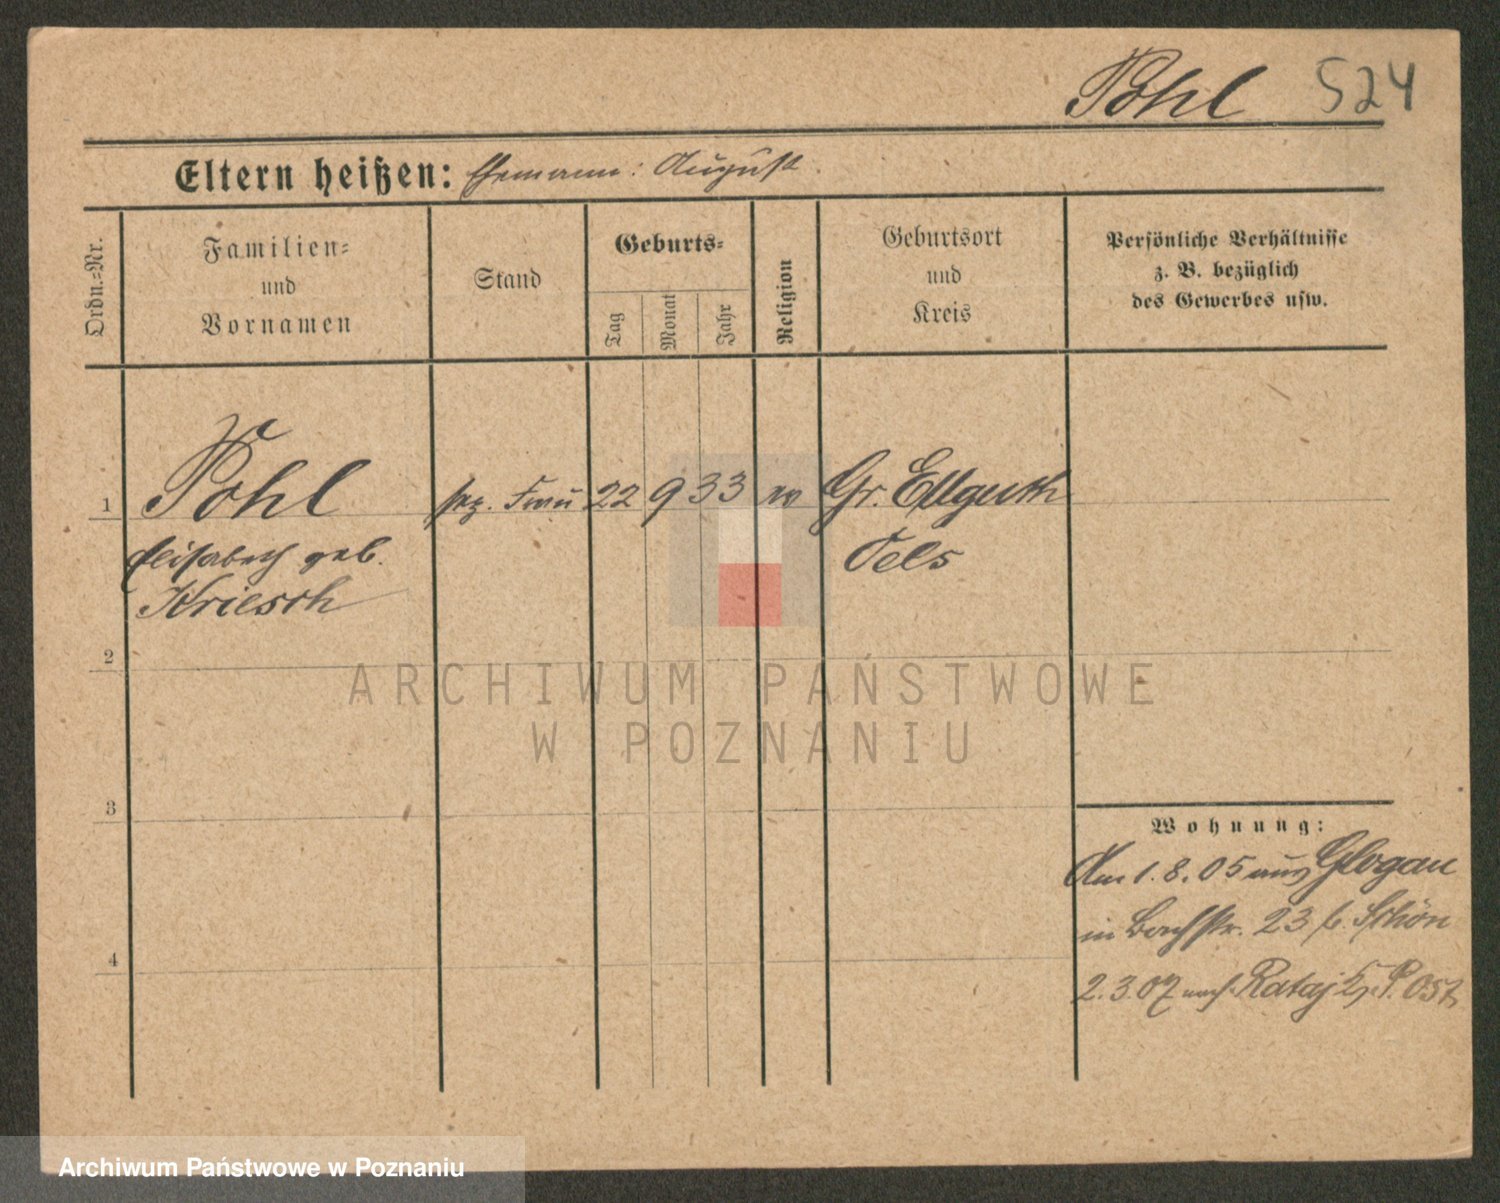 Pohl 524
Eltern heißen: Ehemann: August.
Ordn.-Nr.
Familien-
und
Vornamen
Stand
Geburts-
Tag
Monat
Jahr
Religion
Geburtsort
und
Kreis
Persönliche Verhältnisse
z. B. bezüglich
des Gewerbes usw.
1 Pohl Frau 22 9 33 ev Gr. Ellguth
Elisabeth geb. Oels
Kriesch
2
3
4
Wohnung:
Am 1.8.05 aus Glogau
in Bachstr. 23 b. Schön
2.3.07 nach Rataj P. Ost
ARCHIWUM PAŃSTWOWE
W POZNANIU
Archiwum Państwowe w Poznaniu